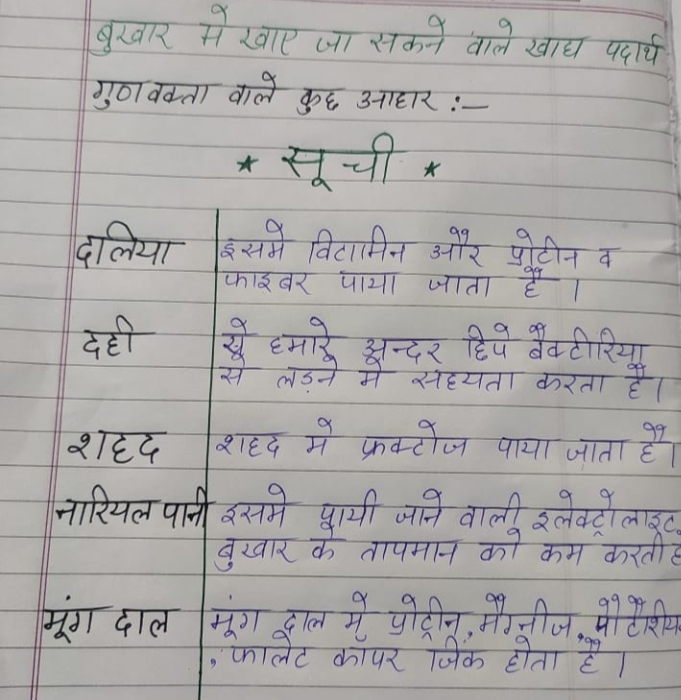 बुखार मे खाए जा सकने वाले खाद्य पदार्थ
गुणवक्ता वाले कुछ आहार :—
* सूची *
दलिया इसमे विटामिन और प्रोटीन व
फाइबर पाया जाता है ।
दही ये हमारे अन्दर छिपे बैक्टीरिया
से लड़ने मे सहयता करता है।
शहद शहद मे फ्रक्टोज पाया जाता है।
नारियल पानी इसमे पायी जाने वाली इलेक्ट्रोलाइट
बुखार के तापमान को कम करती है
मूंग दाल मूंग दाल मे प्रोट्रीन, मैग्नीज, पोटैशिय
, फालेट कापर जिंक होता है ।